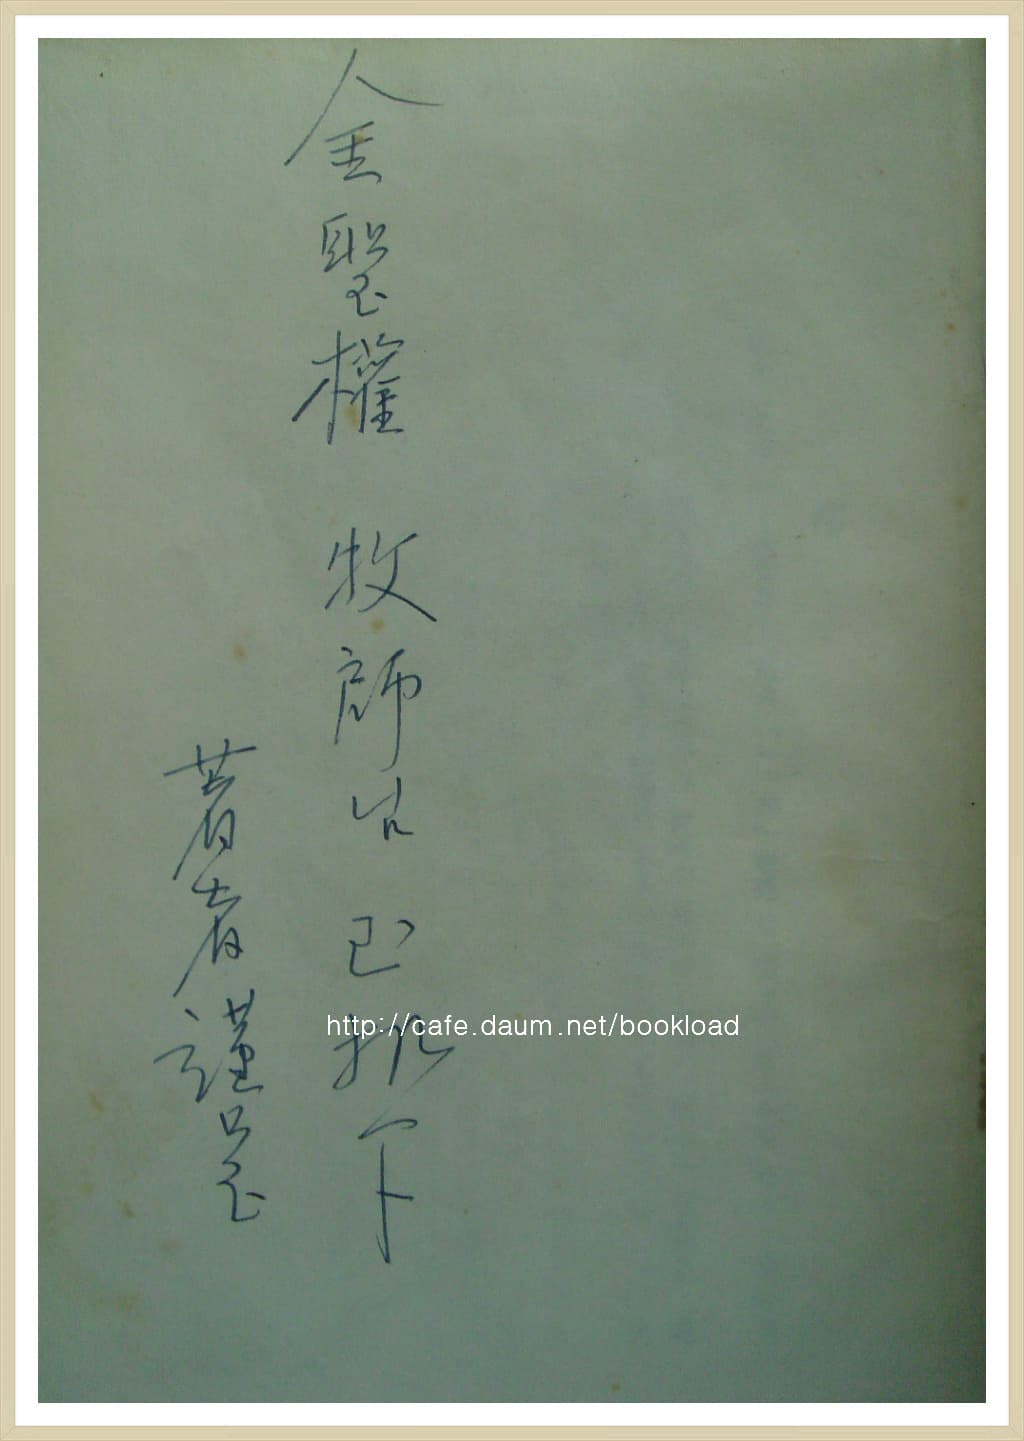 金聖權 牧師님 玉机下
著者謹呈
http://cafe.daum.net/bookload